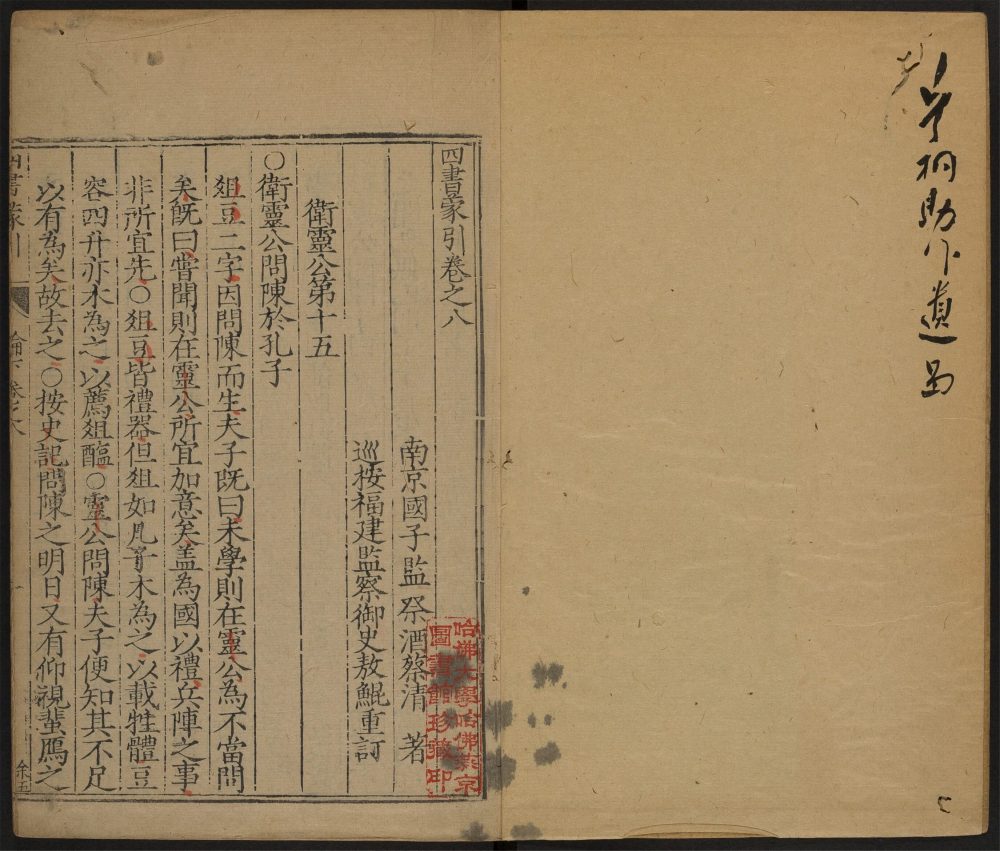 桐助
遺
四書蒙引卷之八
南京國子監祭酒蔡清 著
巡按福建監察御史敖鯤重訂
衛靈公第十五
○衛靈公問陳於孔子
爼豆二字因問陳而生夫子既曰未學則在靈公為不當問
矣既曰嘗聞則在靈公所宜加意矣盖為國以禮兵陣之事
非所宜先○爼豆皆禮器但爼如几亦木為之以載牲體豆
容四升亦木為之以薦爼醢○靈公問陳夫子便知其不足
以有為矣故去之○按史記問陳之明日又有仰視蜚鴈之
四書蒙引
余五
哈佛大學哈佛燕京
圖書館珍藏印